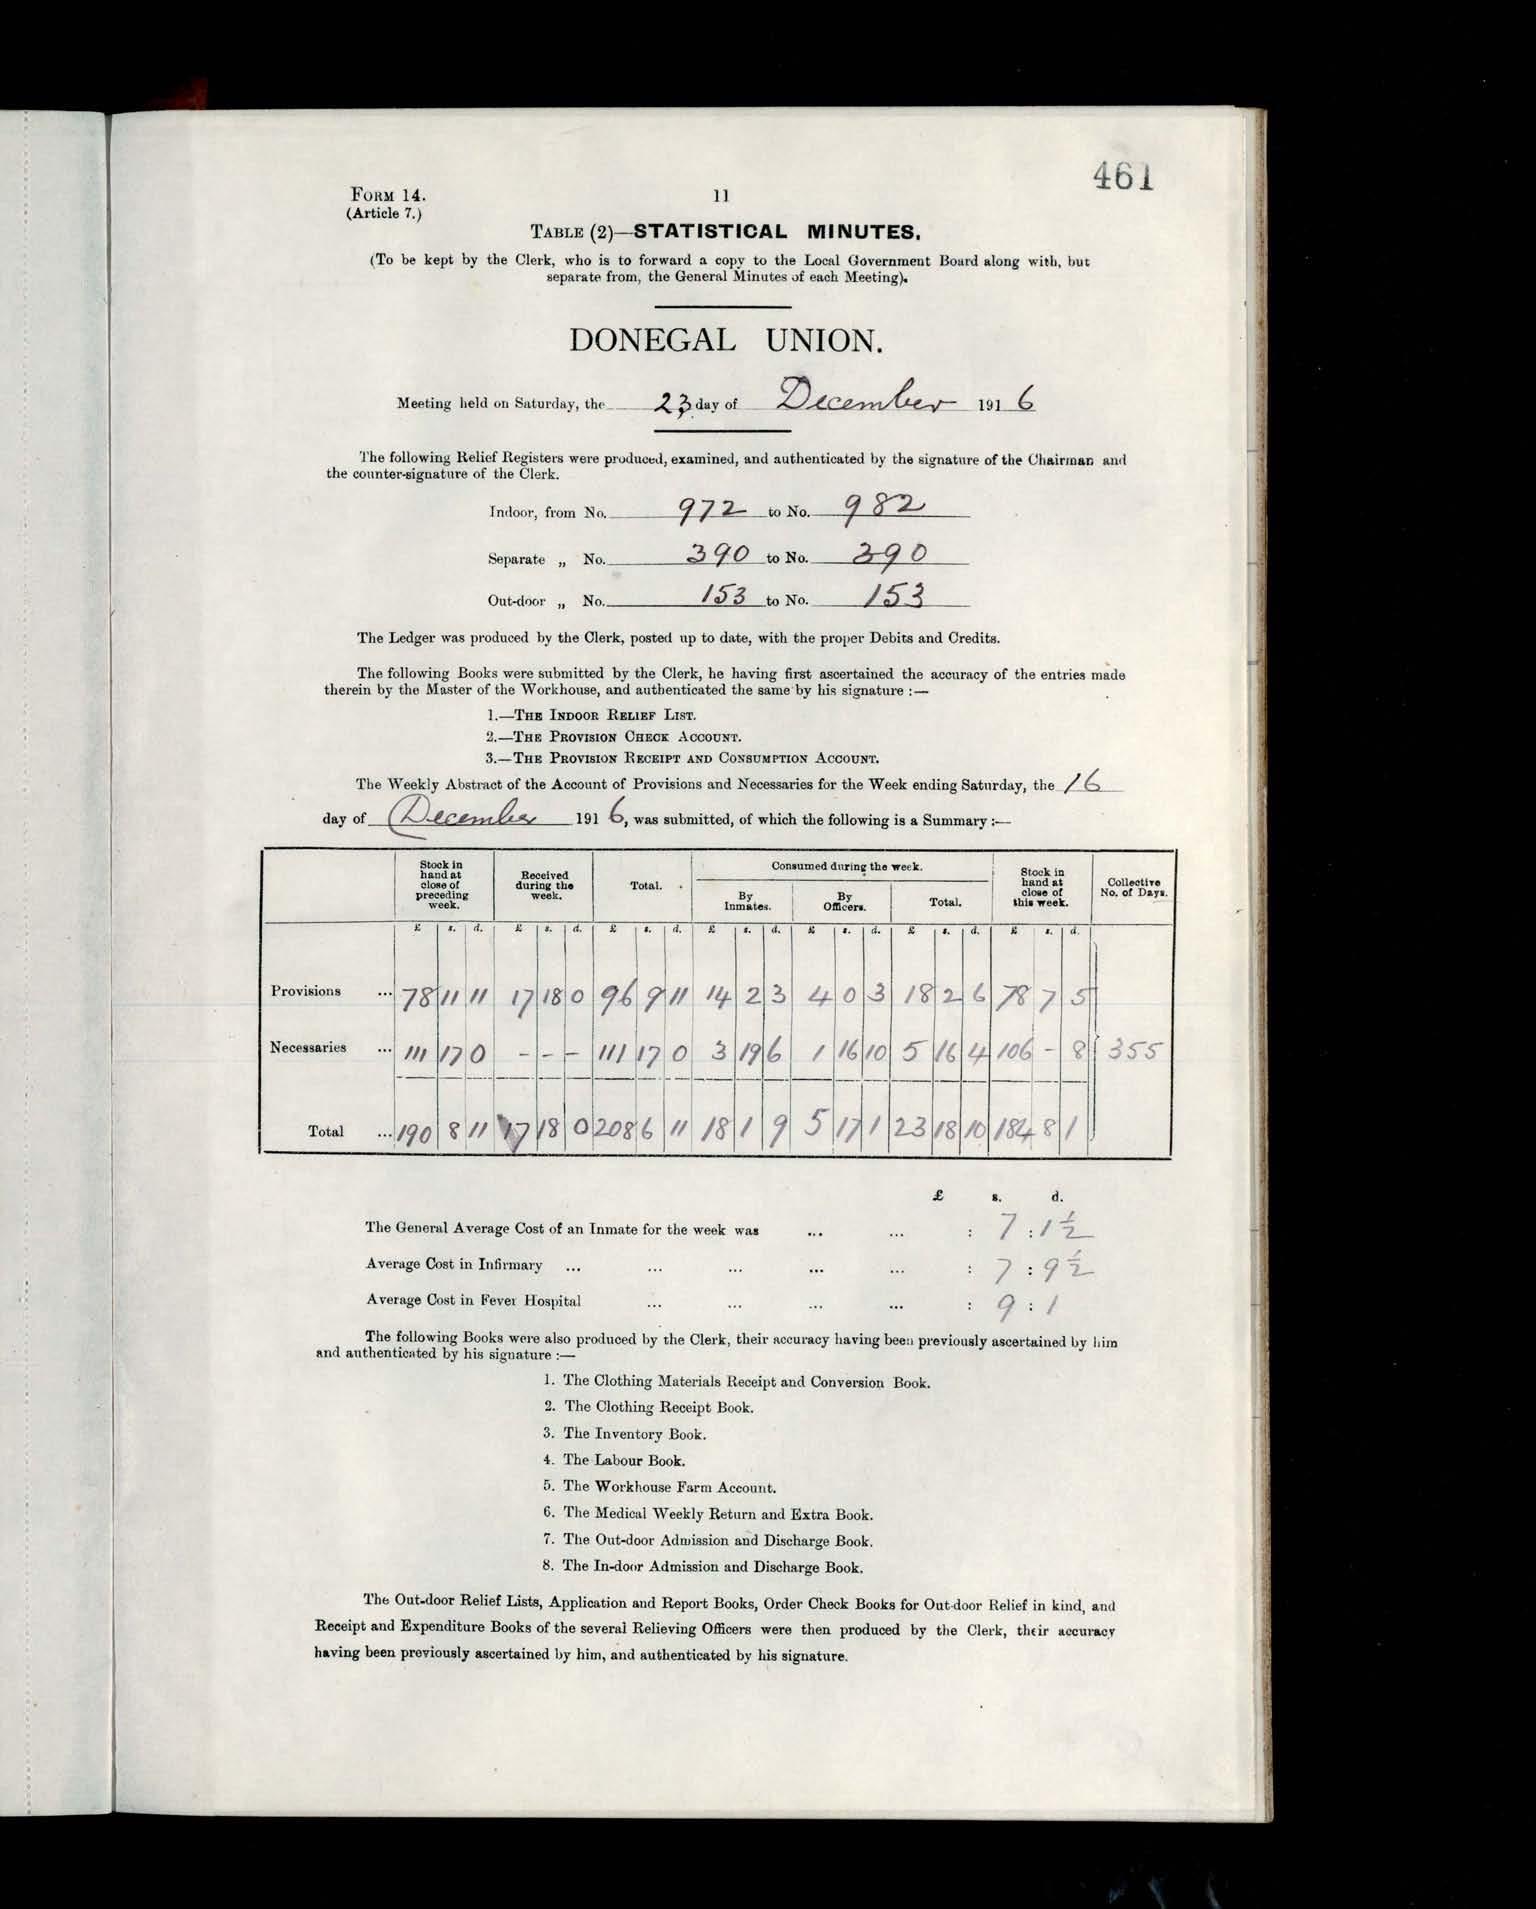 461
FORM 14. 11
(Article 7.)
TABLE (2)—STATISTICAL MINUTES.
(To be kept by the Clerk, who is to forward a copy to the Local Government Board along with, but
separate from, the General Minutes of each Meeting).
DONEGAL UNION.
Meeting held on Saturday, the 23 day of December 1916
The following Relief Registers were produced, examined, and authenticated by the signature of the Chairman and
the counter-signature of the Clerk.
Indoor, from No. 972 to No. 982
Separate „ No. 390 to No. 390
Out-door „ No. 153 to No. 153
The Ledger was produced by the Clerk, posted up to date, with the proper Debits and Credits.
The following Books were submitted by the Clerk, he having first ascertained the accuracy of the entries made
therein by the Master of the Workhouse, and authenticated the same by his signature :—
1.—THE INDOOR RELIEF LIST.
2.—THE PROVISION CHECK ACCOUNT.
3.—THE PROVISION RECEIPT AND CONSUMPTION ACCOUNT.
The Weekly Abstract of the Account of Provisions and Necessaries for the Week ending Saturday, the 16
day of December 1916, was submitted, of which the following is a Summary :—
Stock in hand at close of preceding week. Received during the week. Total. Consumed during the week. Stock in hand at close of this week. Collective No. of Days.
By Inmates. By Officers. Total.
£ s. d. £ s. d. £ s. d. £ s. d. £ s. d. £ s. d. £ s. d.
Provisions ... 78 11 11 17 18 0 96 9 11 14 2 3 4 0 3 18 2 6 78 7 5
Necessaries ... 111 17 0 - - - 111 17 0 3 19 6 1 16 10 5 16 4 106 - 8 355
Total ... 190 8 11 17 18 0 208 6 11 18 1 9 5 17 1 23 18 10 184 8 1
£ s. d.
The General Average Cost of an Inmate for the week was ... ... : 7 : 1½
Average Cost in Infirmary ... ... ... ... ... : 7 : 9½
Average Cost in Fever Hospital ... ... ... ... : 9 : 1
The following Books were also produced by the Clerk, their accuracy having been previously ascertained by him
and authenticated by his signature :—
1. The Clothing Materials Receipt and Conversion Book.
2. The Clothing Receipt Book.
3. The Inventory Book.
4. The Labour Book.
5. The Workhouse Farm Account.
6. The Medical Weekly Return and Extra Book.
7. The Out-door Admission and Discharge Book.
8. The In-door Admission and Discharge Book.
The Out-door Relief Lists, Application and Report Books, Order Check Books for Out-door Relief in kind, and
Receipt and Expenditure Books of the several Relieving Officers were then produced by the Clerk, their accuracy
having been previously ascertained by him, and authenticated by his signature.